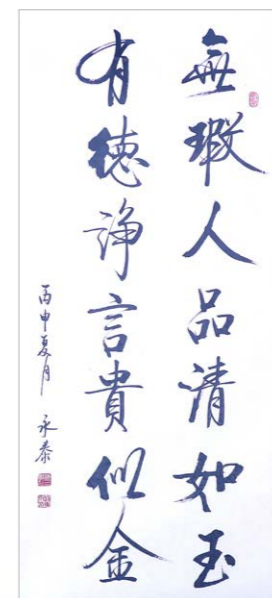 無瑕人品清如玉
有德諍言貴似金
丙申夏月 永泰